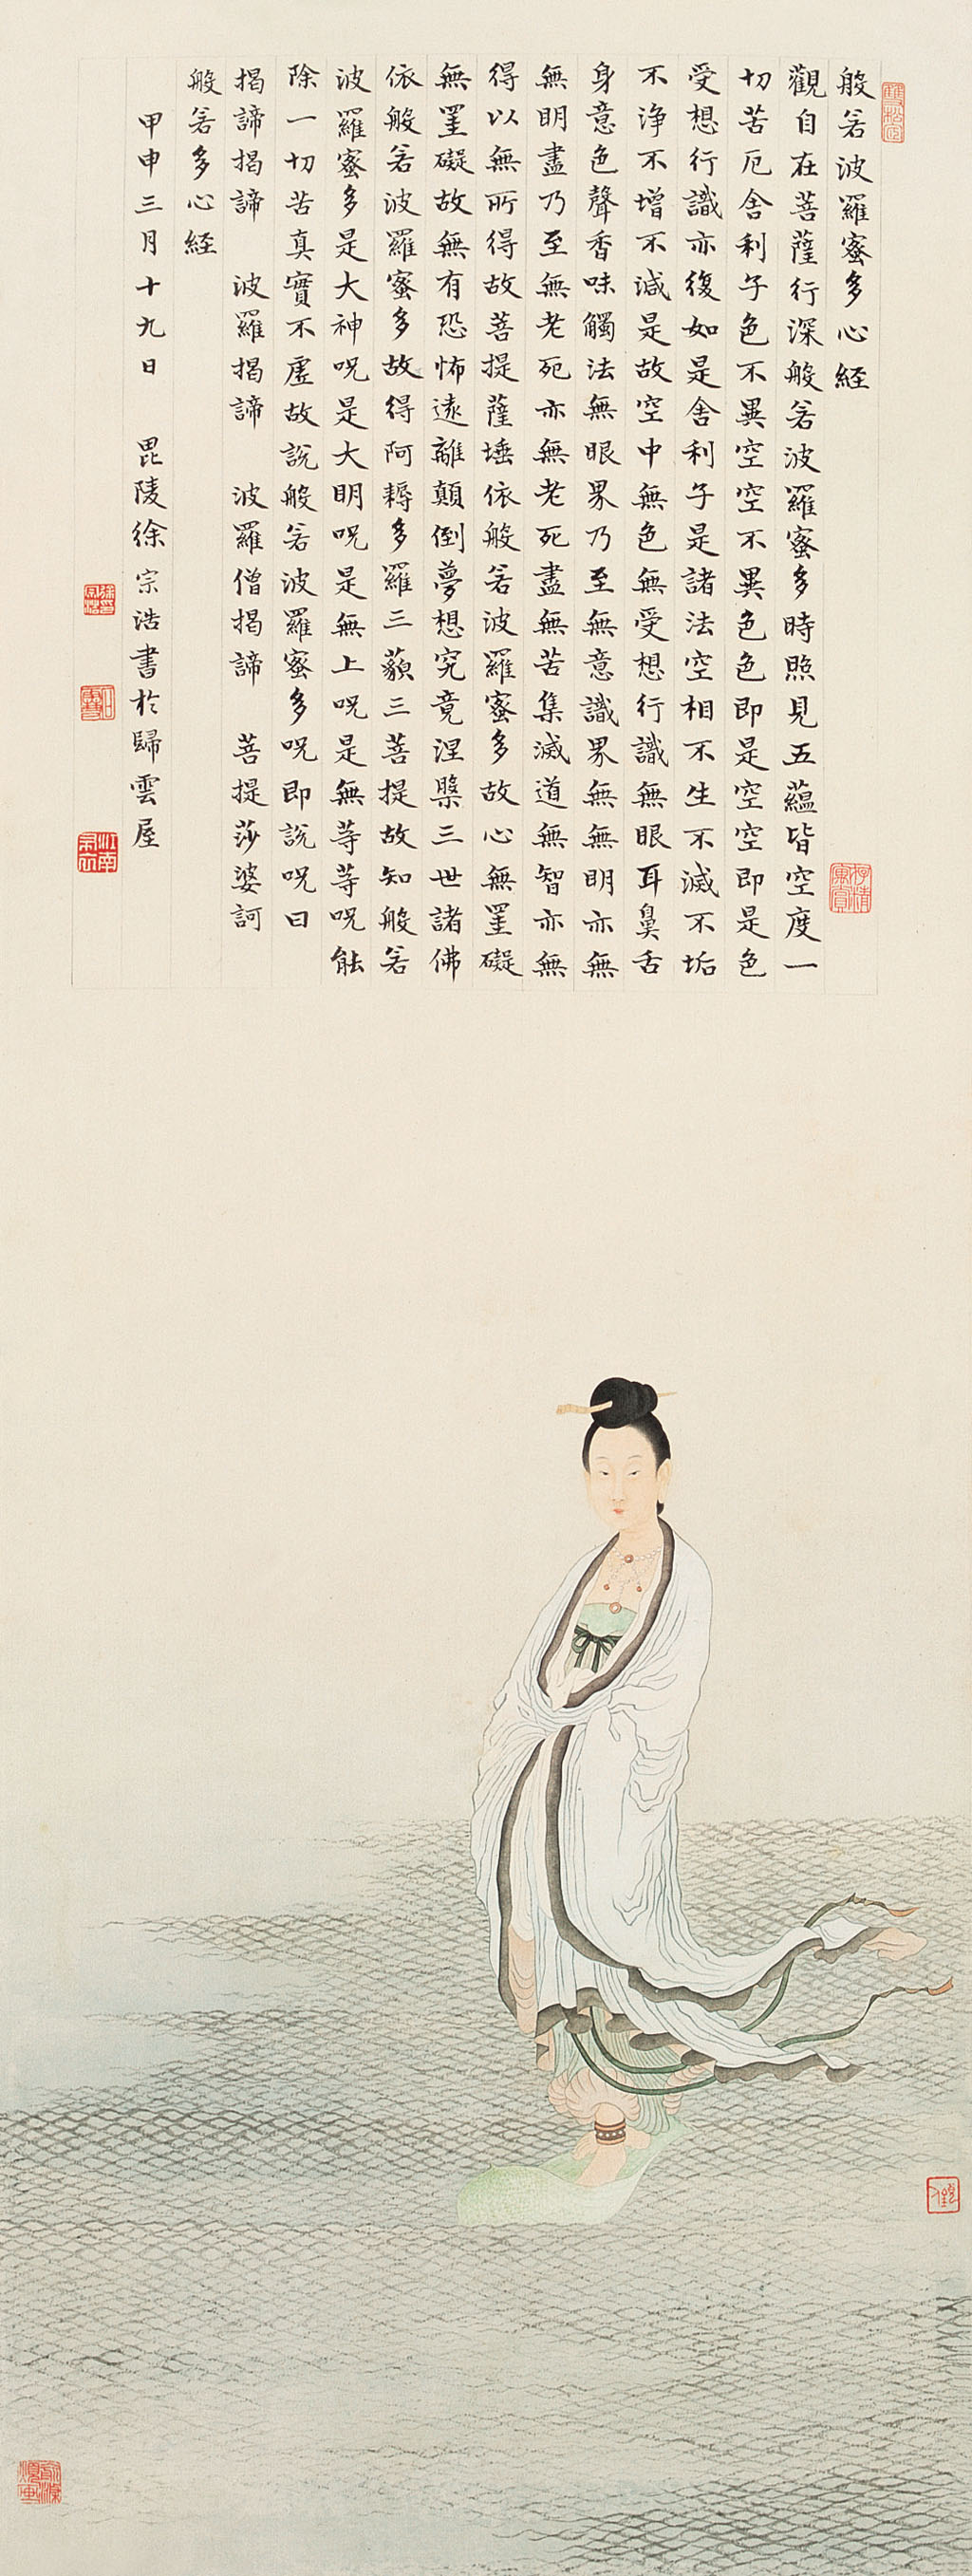 般若波羅蜜多心経
觀自在菩薩行深般若波羅蜜多時照見五蘊皆空度一
切苦厄舍利子色不異空空不異色色即是空空即是色
受想行識亦復如是舍利子是諸法空相不生不滅不垢
不浄不增不減是故空中無色無受想行識無眼耳鼻舌
身意色聲香味觸法無眼界乃至無意識界無無明亦無
無明盡乃至無老死亦無老死盡無苦集滅道無智亦無
得以無所得故菩提薩埵依般若波羅蜜多故心無罣礙
無罣礙故無有恐怖遠離顛倒夢想究竟涅槃三世諸佛
依般若波羅蜜多故得阿耨多羅三藐三菩提故知般若
波羅蜜多是大神呪是大明呪是無上呪是無等等呪能
除一切苦真實不虛故說般若波羅蜜多呪即說呪曰
揭諦揭諦 波羅揭諦 波羅僧揭諦 菩提莎婆訶
般若多心経
甲申三月十九日 毘陵徐宗浩書於歸雲屋